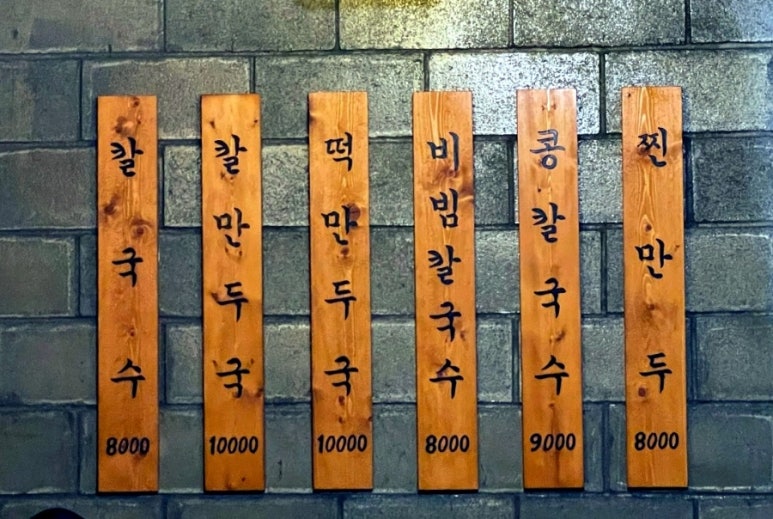 칼국수
8000
칼만두국
10000
떡만두국
10000
비빔칼국수
8000
콩칼국수
9000
찐만두
8000